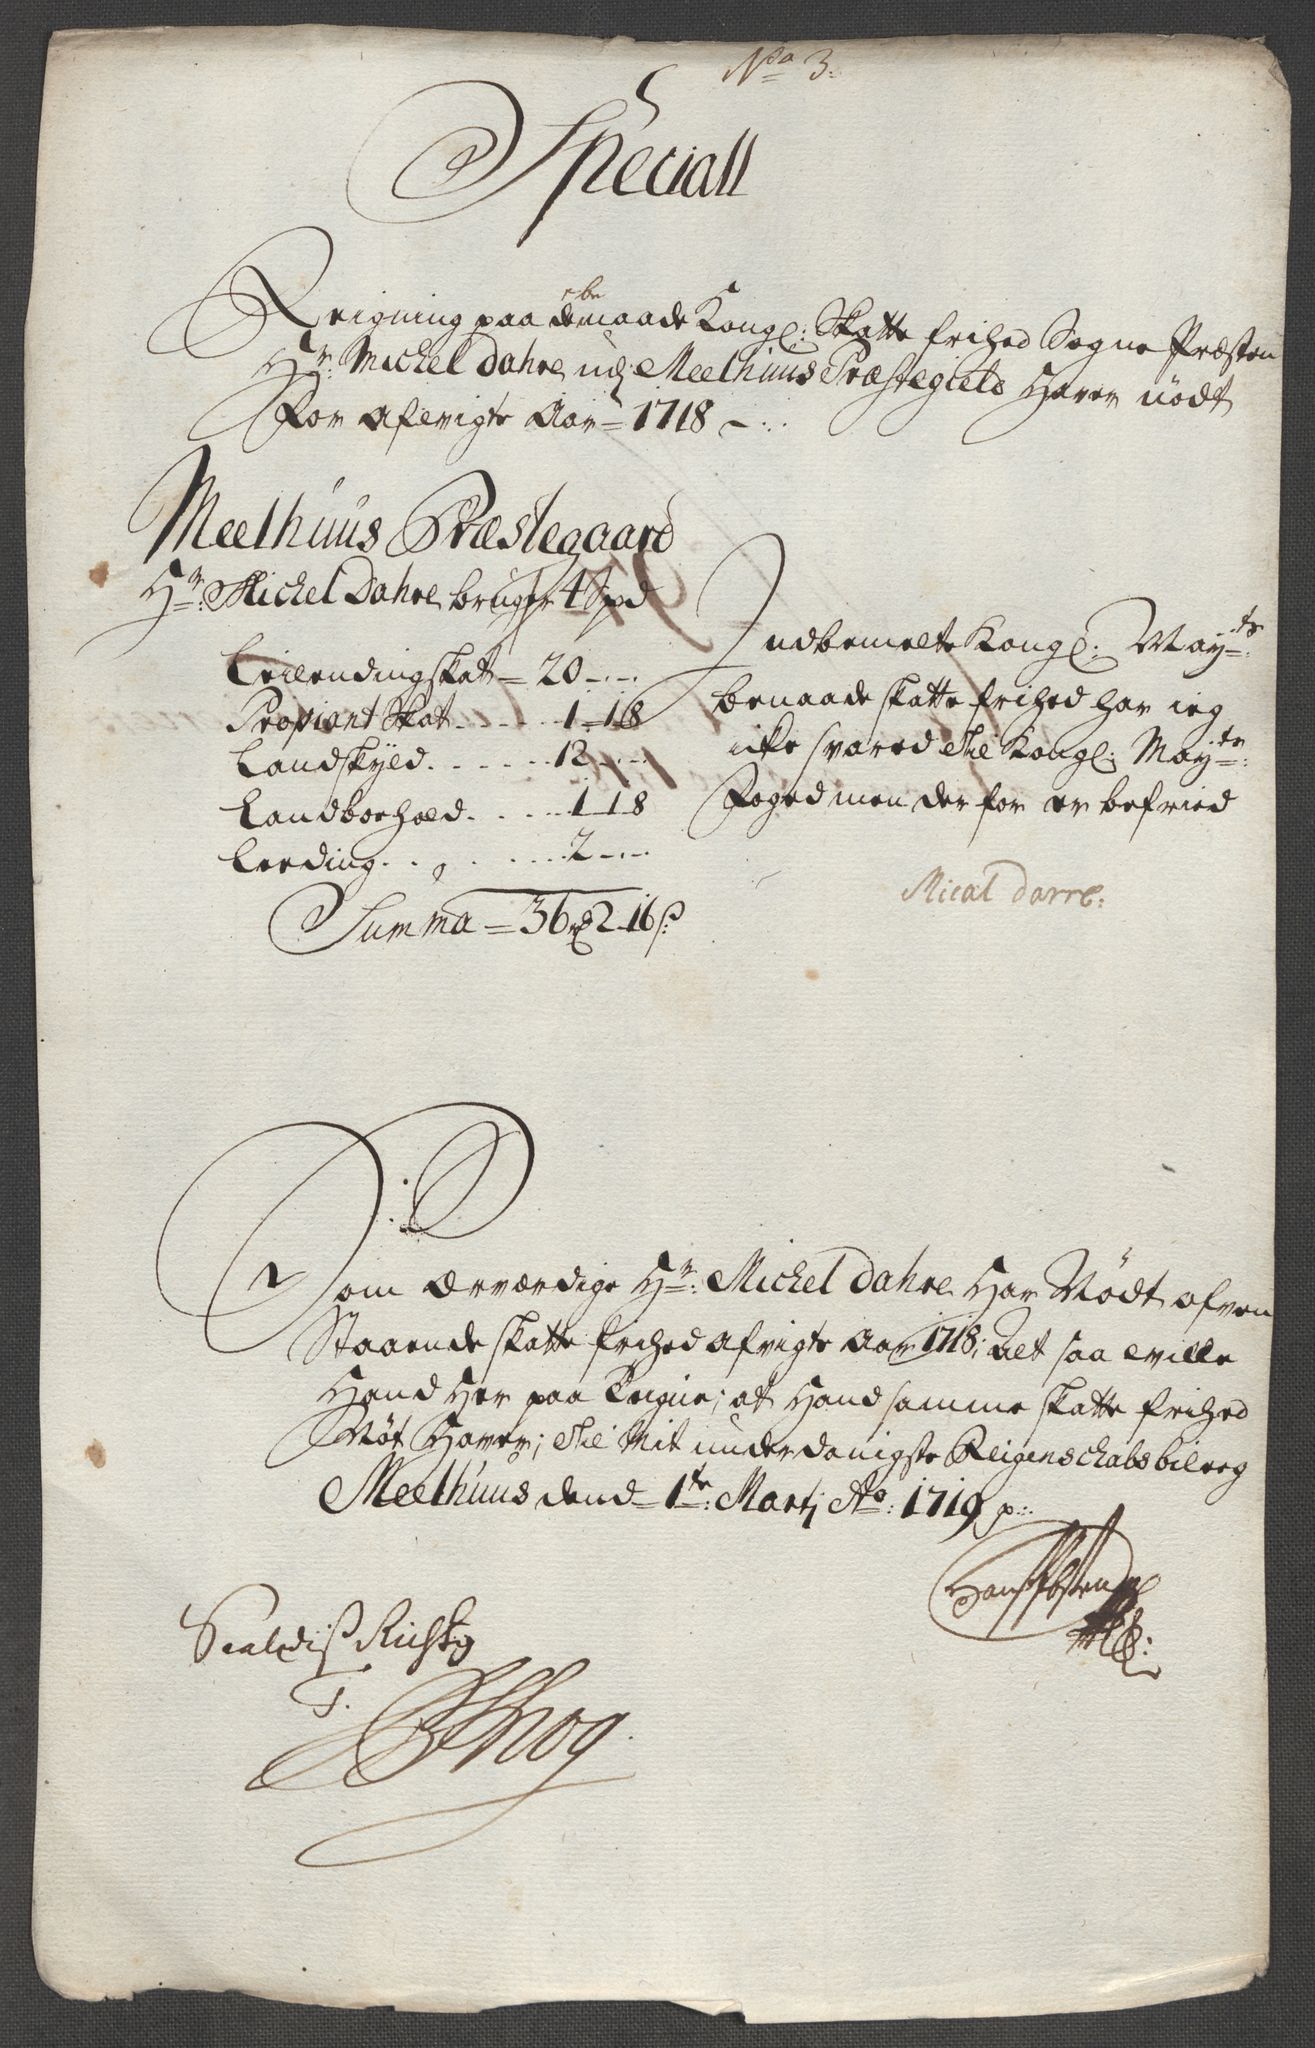 No 3.
Speciall
Reigning paa benaade Kongl: Skatte frihed Sogne Præsten
Hr: Michel Dahre udj Meelhuus Præstegield Haver nödt
For afvigte Aar 1718
Meelhuus Præstegaard
Hr: Michel Dahre bruger 4 Spd
Leilendingskat = 20 - -
Proviant Skat 1 - 1 8
Landskyld 12 - -
Landboehold 1 1 8
Leeding 2 - -
Summa = 36 rd 2 - 16 s
Indbemelte Kongl: Mayts:
benaade skatte frihed har ieg
icke svared till Kongl: Mayts:
Foged men der for er befried
Mical Darre:
Som Ærværdige Hr: Michel Dahre Har Nödt ofven
Staaende skatte frihed afvigte Aar 1718; Alt saa ville
Hand Her paa Teigne; at Hand samme skatte frihed
Nöt Haver; till Mit underdanigste Reigenschabs bileg
Meelhuus dend 1te: Martj Ao: 1719 p:
Hans
T.